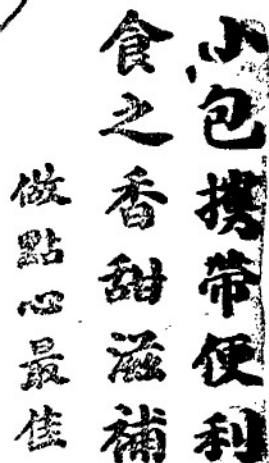 小包携帶便利
食之香甜滋補
做點心最佳